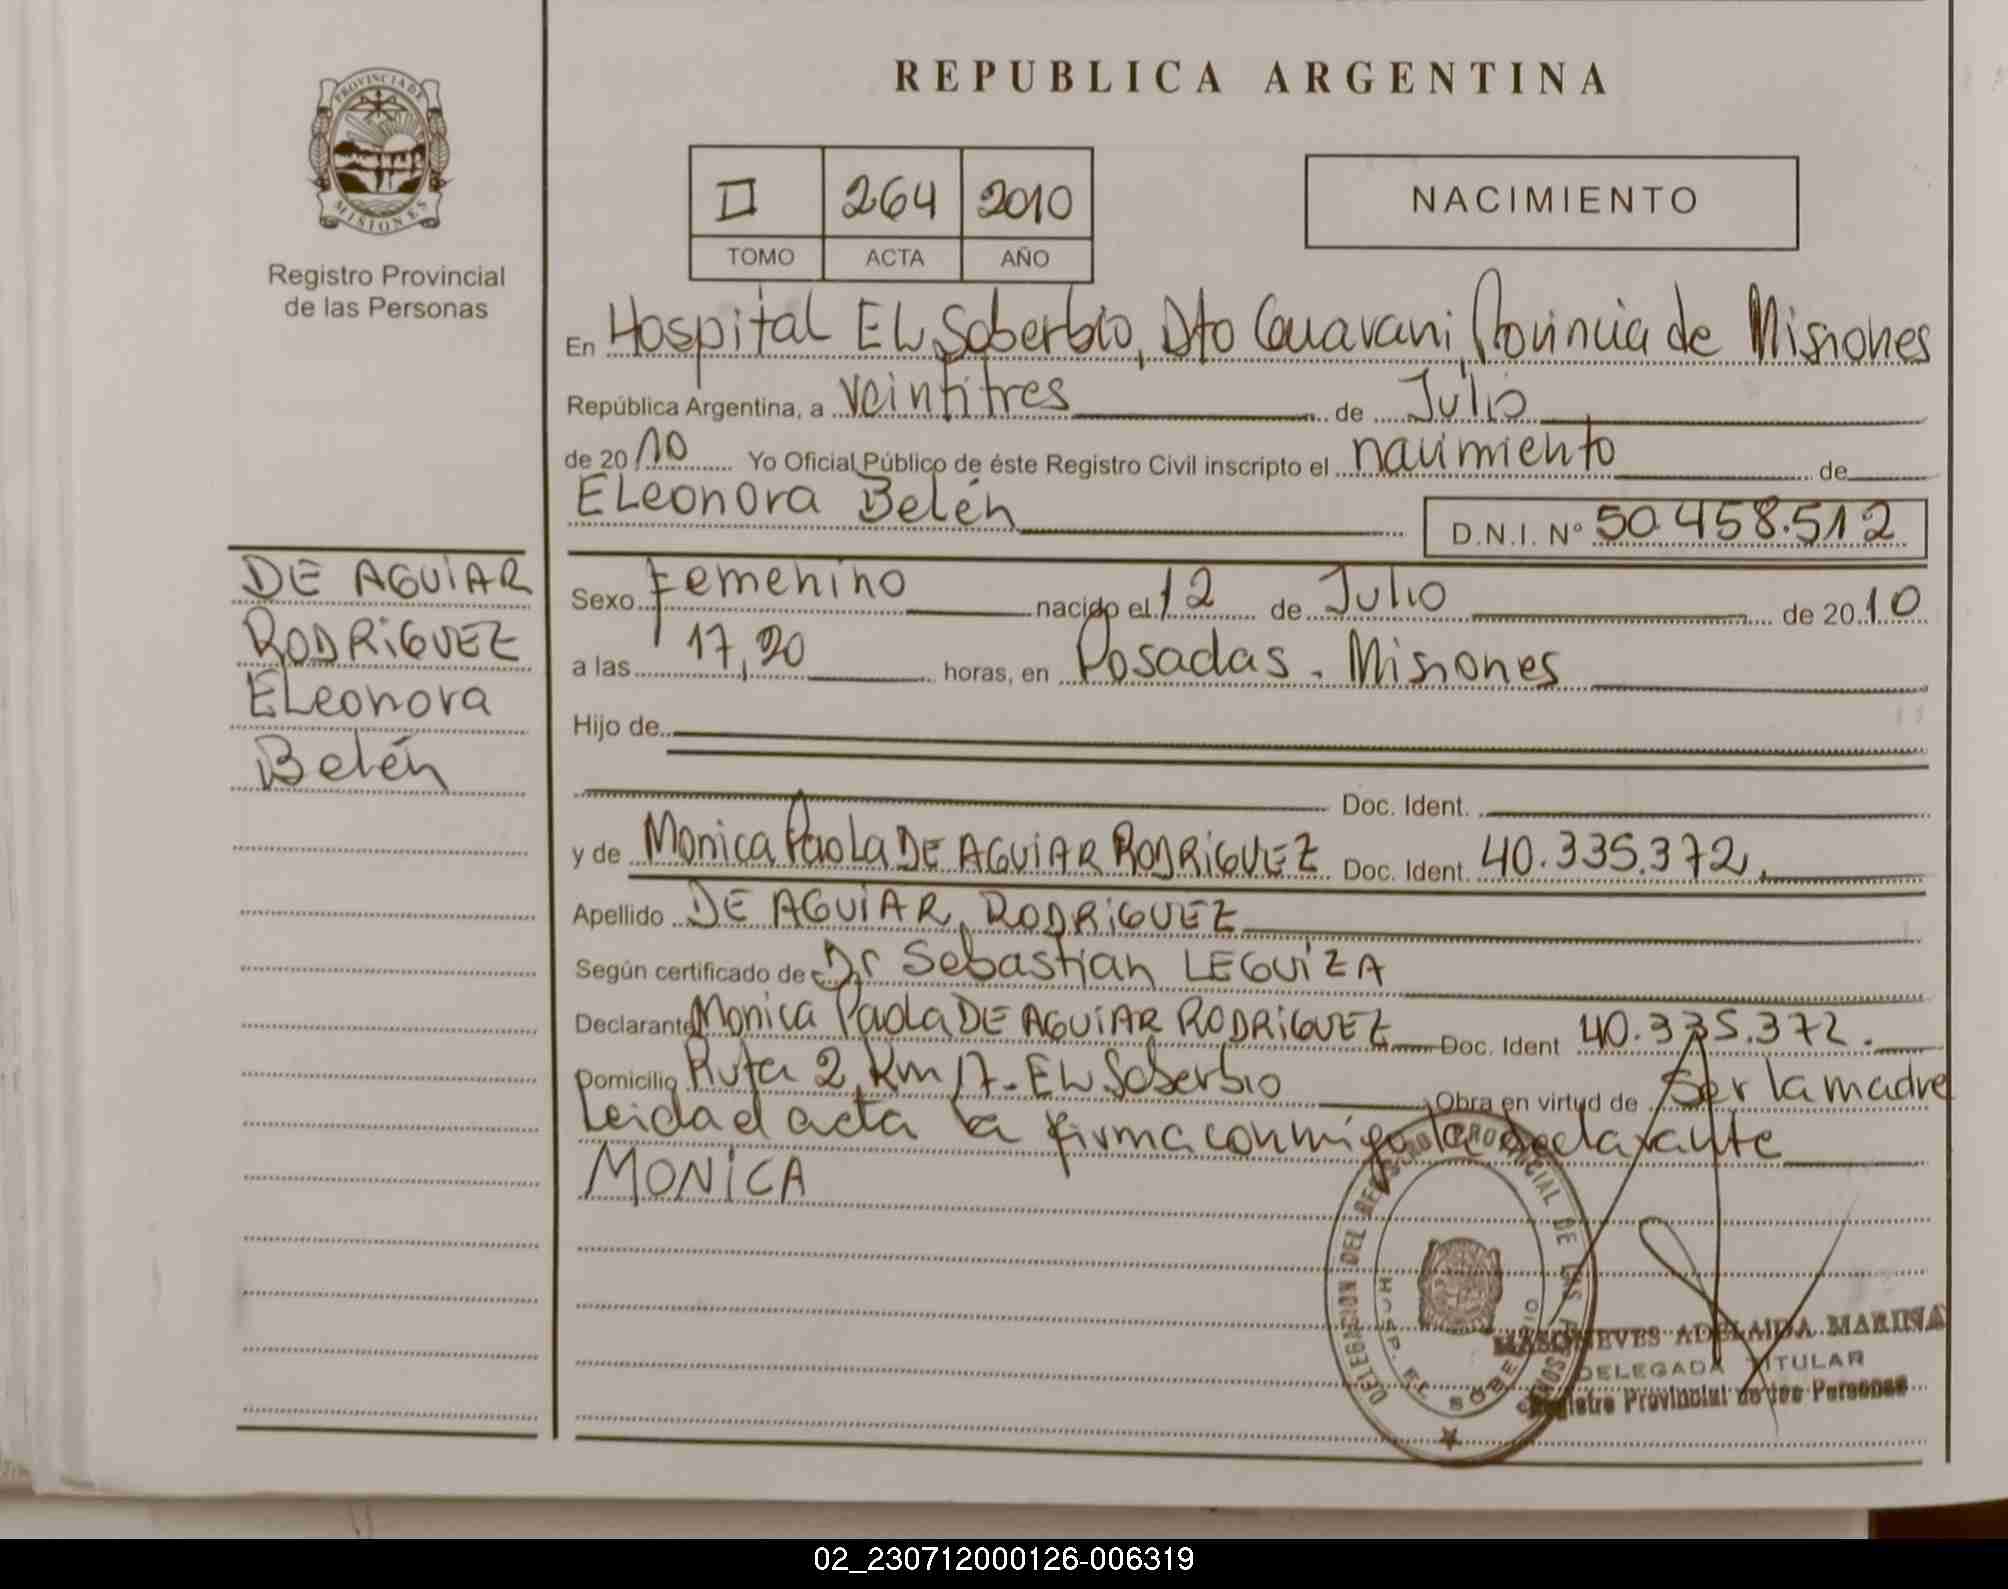 PROVINCIA DE
MISIONES
Registro Provincial
de las Personas
DE AGUIAR
RODRIGUEZ
ELeonora
Belén
REPUBLICA ARGENTINA
II 264 2010
TOMO ACTA AÑO
NACIMIENTO
En Hospital EL Soberbio, Dto Guarani, Provincia de Misiones
República Argentina, a veintitres de Julio
de 2010 Yo Oficial Público de éste Registro Civil inscripto el nacimiento de
ELeonora Belén D.N.I. Nº 50.458.512
Sexo Femenino nacido el 12 de Julio de 2010
a las 17,20 horas, en Posadas - Misiones
Hijo de
Doc. Ident.
y de Monica Paola DE AGUIAR RODRIGUEZ Doc. Ident. 40.335.372.
Apellido DE AGUIAR RODRIGUEZ
Según certificado de Dr Sebastian LEGUIZA
Declarante Monica Paola DE AGUIAR RODRIGUEZ Doc. Ident 40.335.372.
Domicilio Ruta 2 Km 17 - EL Soberbio Obra en virtud de Ser la madre
Leida el acta la firma conmigo la declarante
MONICA
DELEGACION DEL REGISTRO PROVINCIAL DE LAS PERSONAS
HOSP. EL SOBERBIO
ADELAIDA MARINA
DELEGADA TITULAR
Registro Provincial de las Personas
02_230712000126-006319